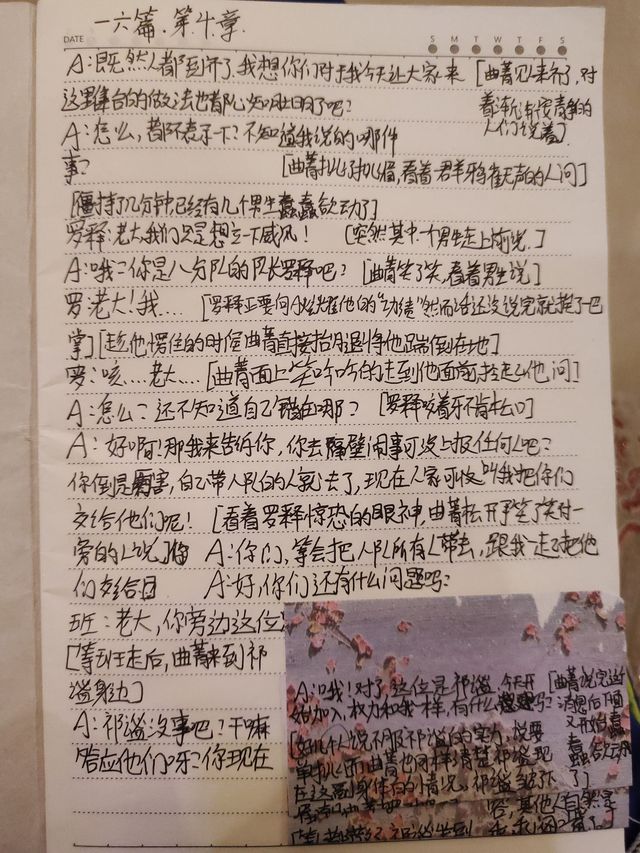 一六篇.第4章.
DATE
S M T W T F S
A:既然人都到齐了,我想你们对于我今天让大家来
[曲菁见人来齐了,对
这里集合的做法也都心知肚明了吧?
着渐渐安静的
人们说着]
A:怎么,都不表示一下?不知道我说的哪件
事?
[曲菁挑了挑眉,看着群鸦雀无声的人问]
[僵持了几分钟,已经有几个男生蠢蠢欲动了]
罗释:老大我们只是想立一下威风! [突然其中一个男生走上前说.]
A:哦?你是八分队的队长罗释吧? [曲菁笑了笑,看着男生说]
罗:老大!我.... [罗释正要向曲菁炫耀他的"功绩"然而话还没说完就挨了一巴
掌][趁他愣住的时侯曲菁直接抬腿将他踹倒在地]
罗:咳....老大.... [曲菁面上笑吟吟的走到他面前,拎起他,问]
A:怎么?还不知道自己错在哪? [罗释咬着牙不肯松口]
A:好啊!那我来告诉你,你去隔壁闹事可没上报任何人吧?
你倒是厉害,自己带人队的人就去了,现在人家可收叫我把你们
交给他们呢! [看着罗释惊恐的眼神,曲菁松开手笑了笑对一
旁的人说] A:你们,等会把八队所有人带去,跟我一起把他
们交给 A:好,你们还有什么问题吗?
班:老大,你旁边这位
[等到班走后,曲菁来到祁
溢身边]
A:祁溢没事吧?干嘛
答应他们呀?你现在
A:哦!对了,这位是祁溢,今天开
[曲菁说完这个
始加入,权力和我一样,有什么想吗?
消息后下面
又开始蠢
蠢欲动
了]
[好几个人说不服祁溢的实力,说要
单挑,而曲菁也同样清楚祁溢现
在这副身体的情况,祁溢
容,其他人自然是